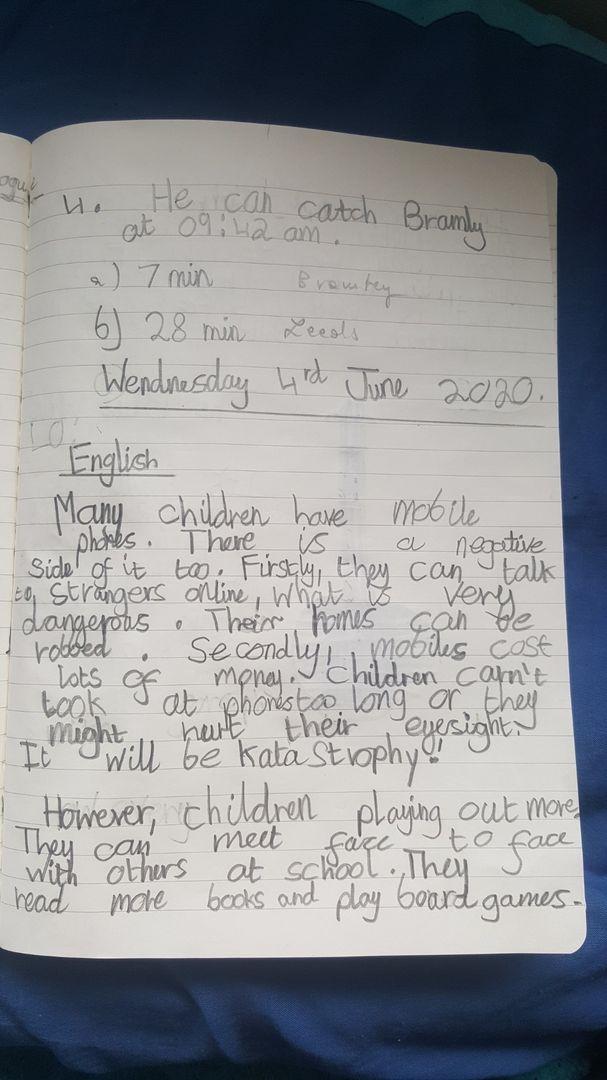 4. He can catch Bramly
at 09:42 am.
a) 7 min Bramley
b) 28 min Leeds
Wendnesday 4rd June 2020.
English
Many children have mobile
phones. There is a negative
side of it too. Firstly, they can talk
to strangers online, what is very
dangerous. Their homes can be
robbed. Secondly, mobiles cost
lots of money. Children carn't
look at phones too long or they
might hurt their eyesight.
It will be katastrophy!
However, children playing out more.
They can meet face to face
with others at school. They
read more books and play board games.